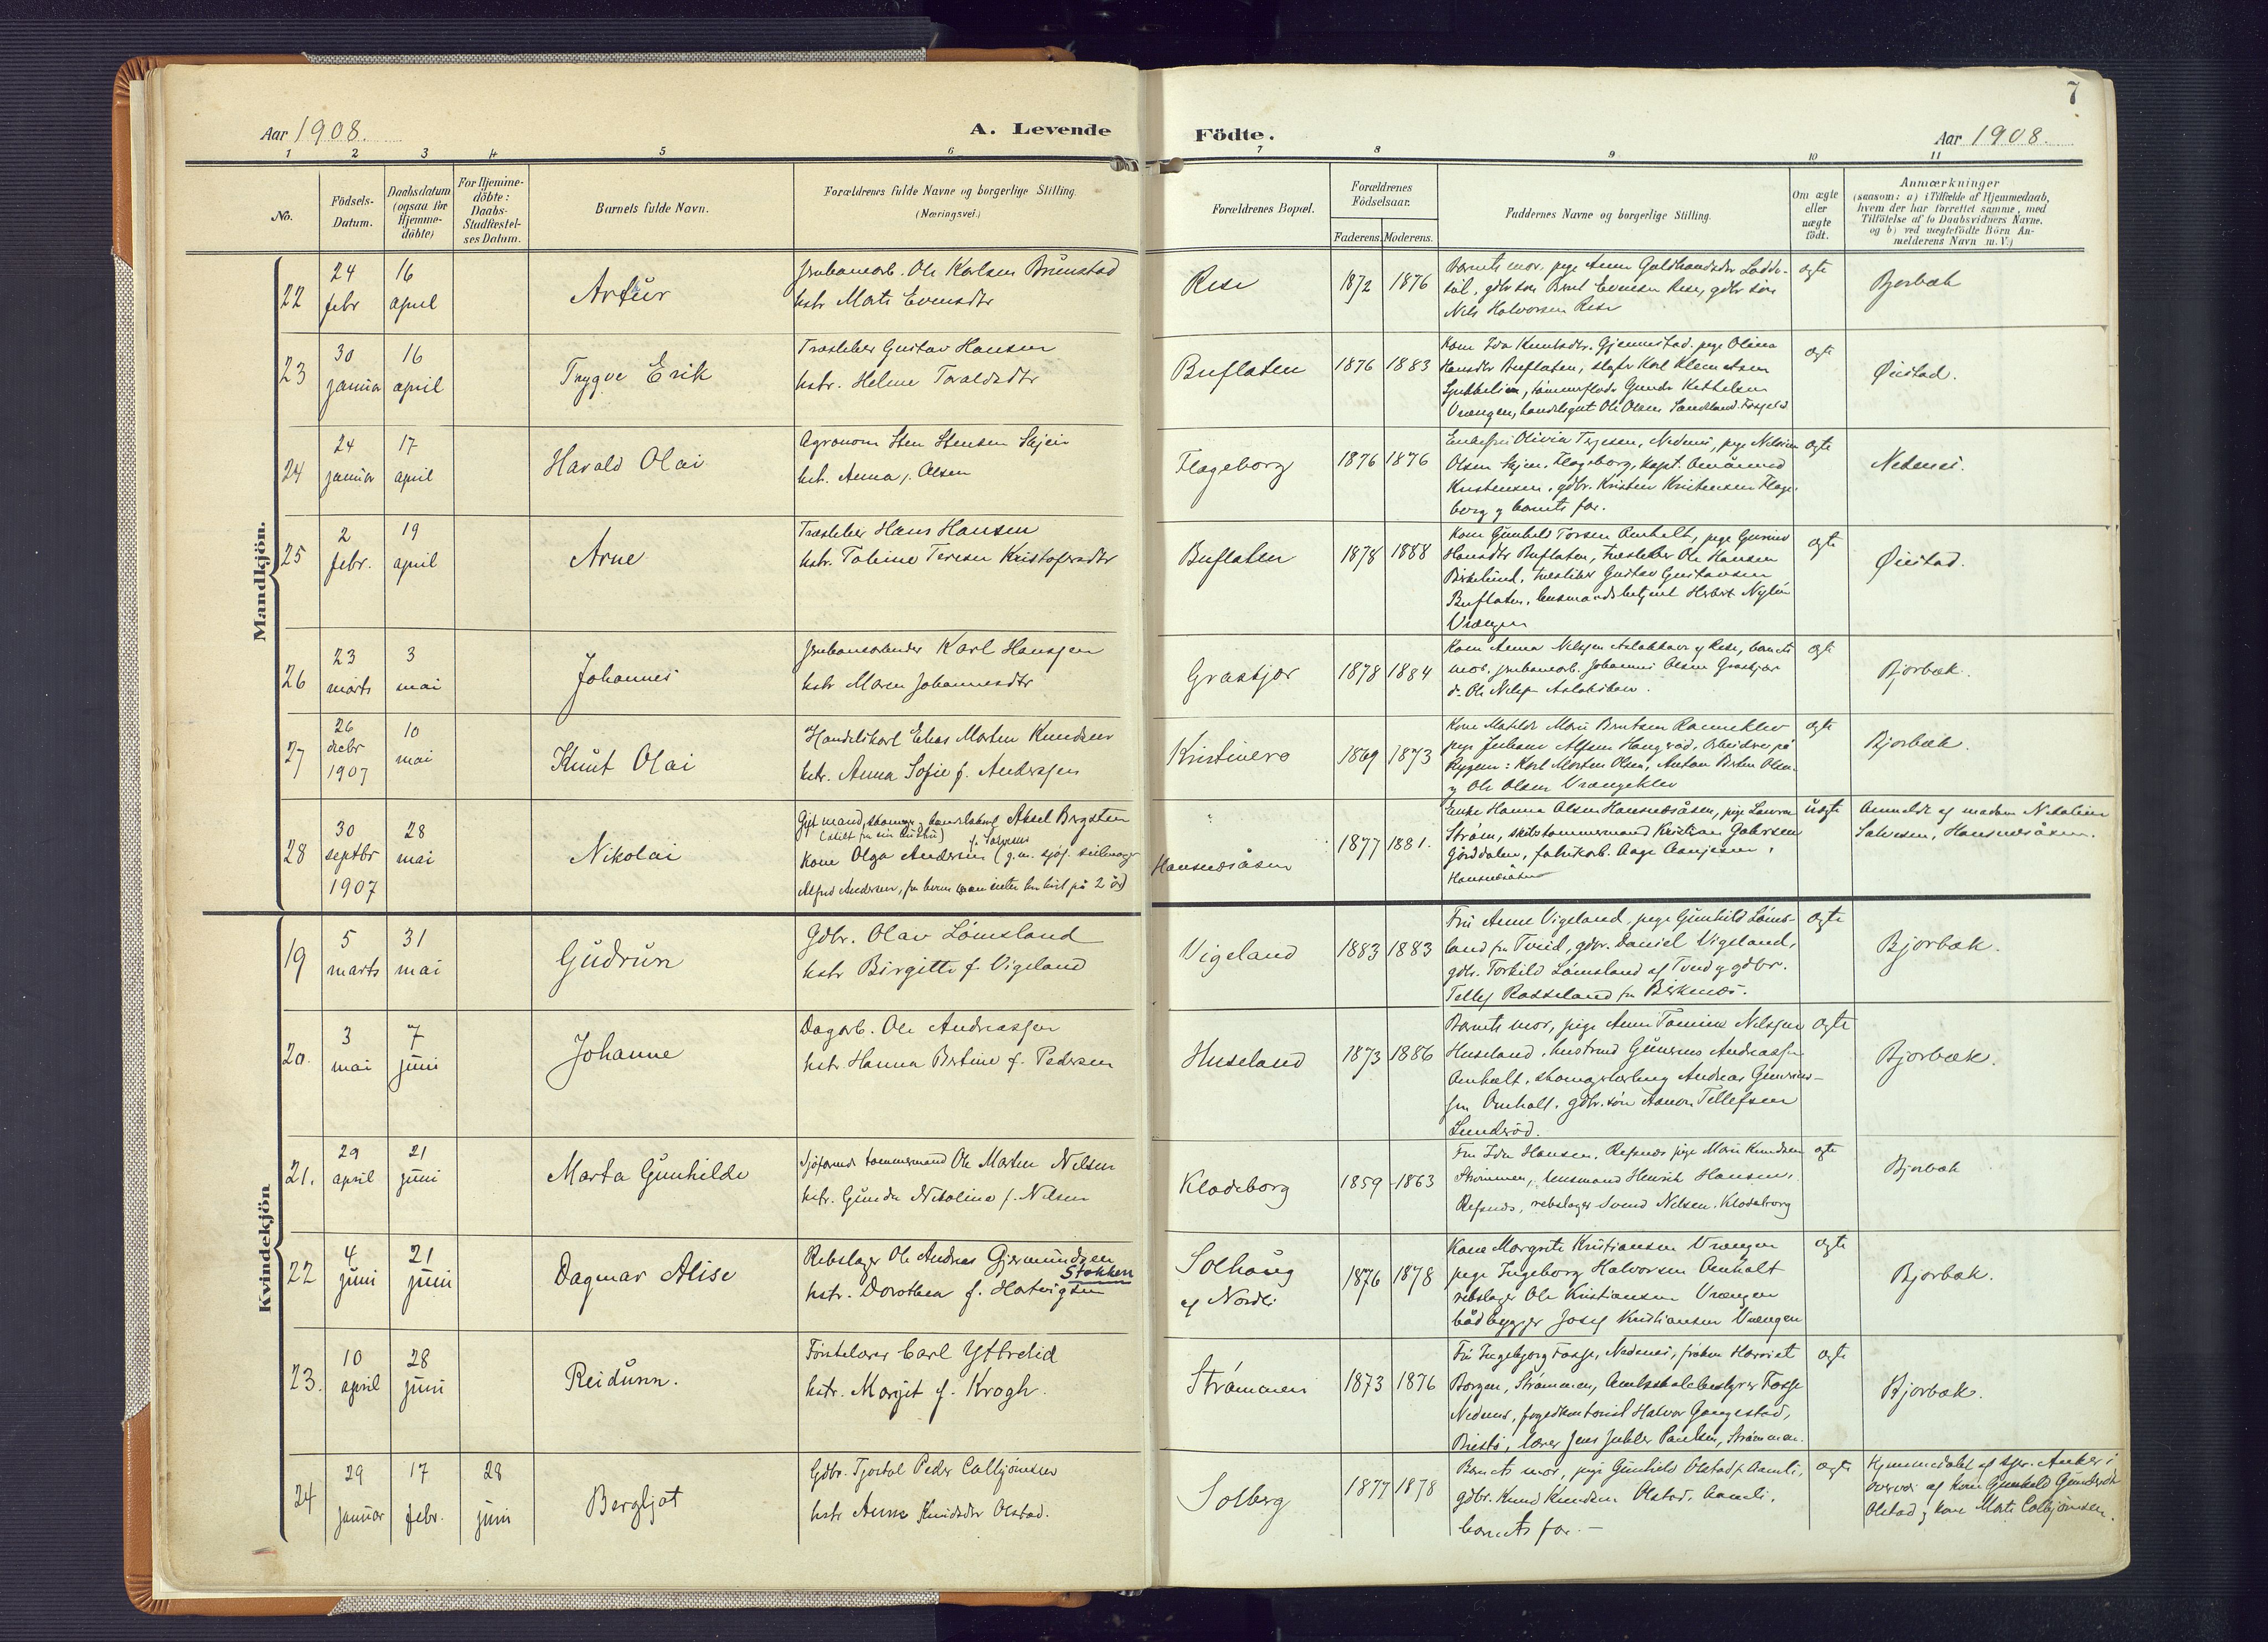 7
Aar 1908.
A. Levende
Födte.
Aar 1908.
1 2 3 4 5 6 7 8 9 10 11
No.
Födsels-
Datum.
Daabsdatum
(ogsaa for
Hjemme-
döbte)
For Hjemme-
döbte:
Daabs-
Stadfæstel-
ses Datum.
Barnets fulde Navn.
Forældrenes fulde Navne og borgerlige Stilling.
(Næringsvei.)
Forældrenes Bopæl.
Forældrenes
Födselsaar.
Faderens. Moderens.
Faddernes Navne og borgerlige Stilling.
Om ægte
eller
uægte
födt.
Anmærkninger
(saasom: a) i Tilfælde af Hjemmedaab,
hvem der har forrettet samme, med
Tilföielse af to Daabsvidners Navne.
og b) ved uægtefödte Börn An-
melderens Navn m. V.)
Mandkjön.
22
24
febr
16
april
Artur
Jernbanearb. Ole Karlsen
hstr Marte Evensdtr
Rese
1872 1876
Barnets mor, pige Anne
gdbr søn Bent Evensen Rese, gdbr søn
Nils Halvorsen Rese
ægte
Bjorbæk
23
30
januar
16
april
Trygve Erik
Træsliber Gustav Hansen
hstr. Helene Taraldsdtr
Buflaten
1876 1883
Kone Ida Knutsdtr. Gjennestad. pige Olina
Hansdtr Buflaten,
Gunder Kittelsen
Vrængen, handelsgut Ole Olsen
ægte
Øiestad.
24
24
januar
17
april
Harald Olai
Agronom Sten Stensen
hst. Anna f. Olsen
Flageborg
1876 1876
Olivia Terjesen, Nedenes, pige
Olsen Flageborg, kapt.
Kristensen, gdbr. Kristen Kristensen Flage-
borg g barnets far.
ægte
Nedenes.
25
2
febr.
19
april
Arne
Træsliber Hans Hansen
hstr. Tobine Terese Kristofersdtr
Buflaten
1878 1888
Kone Gunhild Torsen Omholt, pige
Hansdtr Buflaten, træsliber Ole Hansen
Birkelund, træsliber Gustav Gustavsen
Buflaten, lensmandsbetjent Herbert Nylén
Vrængen
ægte
Øiestad.
26
23
marts
3
mai
Johannes
Jernbanearbeider Karl Hansen
hstr Maren Johannesdtr
Græskjær
1878 1884
Kone Anna Nilsen Rese, barnets
mor, jernbanearb. Johannes Olsen Græskjær
do Ole
ægte
Bjorbæk.
27
26
decbr
1907
10
mai
Knut Olai
Handelskarl Elias Morten Knudsen
hstr. Anna Sofie f. Andersen
Kristinero
1869 1873
Kone Matilde Marie Berntsen Ranneklev
pige på
Rygene: Karl Morten Olsen, Anton Olsen
g Ole Olsen Vrængekilen
ægte
Bjorbæk.
28
30
septbr
1907
28
mai
Nikolai
Gift mand, skomager g handelskarl Aksel Bergsten
(skilt fra sin hustru)
kone Olga Andersen (g.m. sjøf. seilmager
Alfred Andersen, fra hvem man intet har hørt på 2 år)
Hansnesåsen
1877 1881.
Enke Hanna Olsen Hansnesåsen, pige Laura
Strøm, skibstømmermand Kristian
fabrikarb. Aage
Hansnesåsen
uægte
Anmeldt af madam Nikoline
Salvesen, Hansnesåsen.
Kvindekjön
19
5
marts
31
mai
Gudrun
Gdbr. Olav Lömsland
hstr Birgitte f. Vigeland
Vigeland
1883 1883
Fru Anne Vigeland, pige Gunhild Löms-
land fra Tveid, gdbr. Daniel Vigeland,
gdb. Torkild Lömsland af Tveid g gdbr.
Tellef Rosseland fra Birkenes.
ægte
Bjorbæk.
20.
3
mai
7
juni
Johanne
Dagarb. Ole Andreassen
hstr Hanna Bertine f. Pedersen
Huseland
1873 1886
Barnets mor, pige Anne Tomine Nilsen
Huseland, hustrud Gunerius Andreassen
Omholt, skomagerlærling Andreas Gunerius-
sen Omholt, gdbr. søn Aanon Tellefsen
Lunderød.
ægte
Bjorbæk.
21.
29
april
21
juni
Marta Gunhilde
Sjöfarende tömmermand Ole Martin Nilsen
hstr. Gunda Nikoline f. Nilsen
Klodeborg
1859 1863
Fru Ida Hansen, Refsnes pige Marie Knudsen
Strömmen, lensmand Henrik Hansen,
Refsnes, rebslager Svend Nilsen. Klodeborg
ægte
Bjorbæk
22
4
juni
21
juni
Dagmar Alise
Rebslager Ole Andreas Gjermundsen
Stokken
hstr. Dorothea f. Hartvigsen
Solhaug
af Nordli
1876 1878
Kone Margrete Kristiansen Vrængen
pige Ingeborg Halvorsen Omholt
rebslager Ole Kristiansen Vrængen
bådbygger Josef Kristiansen Vrængen
ægte
Bjorbæk.
23.
10
april
28
juni
Reidunn.
Förstelærer Carl Ytbreid
hstr. Margit f. Krogh.
Strömmen
1873 1876
Fru Ingebjorg Fosse, Nedenes, fröken Harriet
Borgen, Strömmen, Amtsskolebestyrer Fosse
Nedenes, fogedkontorist Halvor Gangestad,
lærer Jens Paulsen, Strömmen.
ægte
Bjorbæk.
24
29
januar
17
febr.
28
juni
Bergljot
Gdbr. Tjostol Peder Colbjörnsen
hstr Anne Knudsdtr Olstad.
Solberg
1877 1878
Barnets mor, pige Gunhild Olstad f. Aamli,
gdbr. Knud Knudsen Olstad, Aamli,
barnets far. —
ægte
Hjemmedöbt af spr. Anker i
overvær af kone Gunhild Gundersdtr
Olstad g kone Marte Colbjörnsen.